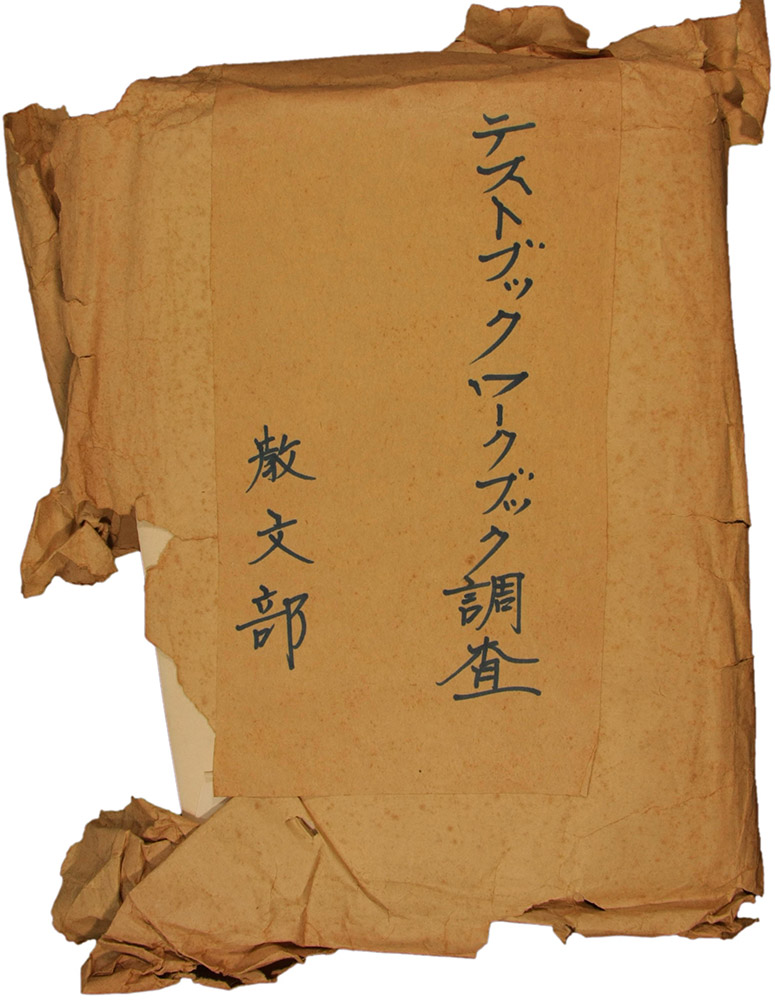 テストブックワークブック調査
教文部